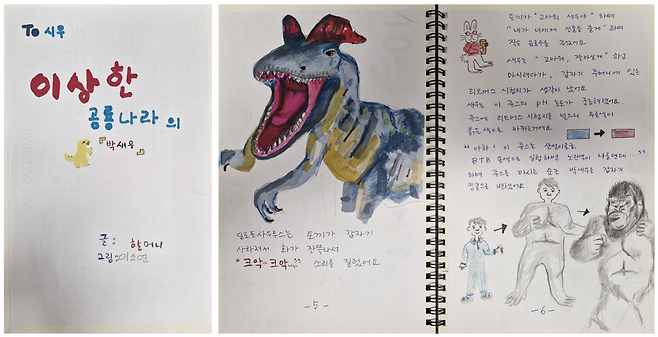 To 시우
이상한
공룡나라의
"박새우"
글: 할머니
그림:이소연
딜로포사우루스는 토끼가 갑자기
사라져서 화가 잔뜩나서
"크악~크악~~" 소리를 질렀어요
-5-
토끼가 "고마워 새우야" 하며
"내가 너에게 선물을 줄게" 하며
작은 음료수를 주었어요.
새우는 "고마워, 잘마실게" 하고
마시려다가, 갑자기 주머니에 있는
리트머스 시험지가 생각이 났어요
새우는 이 쥬스의 pH 농도가 궁금해졌어요.
쥬스에 리트머스 시험지를 넣으니 푸른색이
붉은 색으로 바뀌는거예요.
"아하! 이 쥬스는 산성이므로
BTB 용액으로 실험하면 노란색이 나올텐데..."
하며 쥬스를 마시는 순간 박새우는 갑자기
킹콩으로 변했어요.
-6-